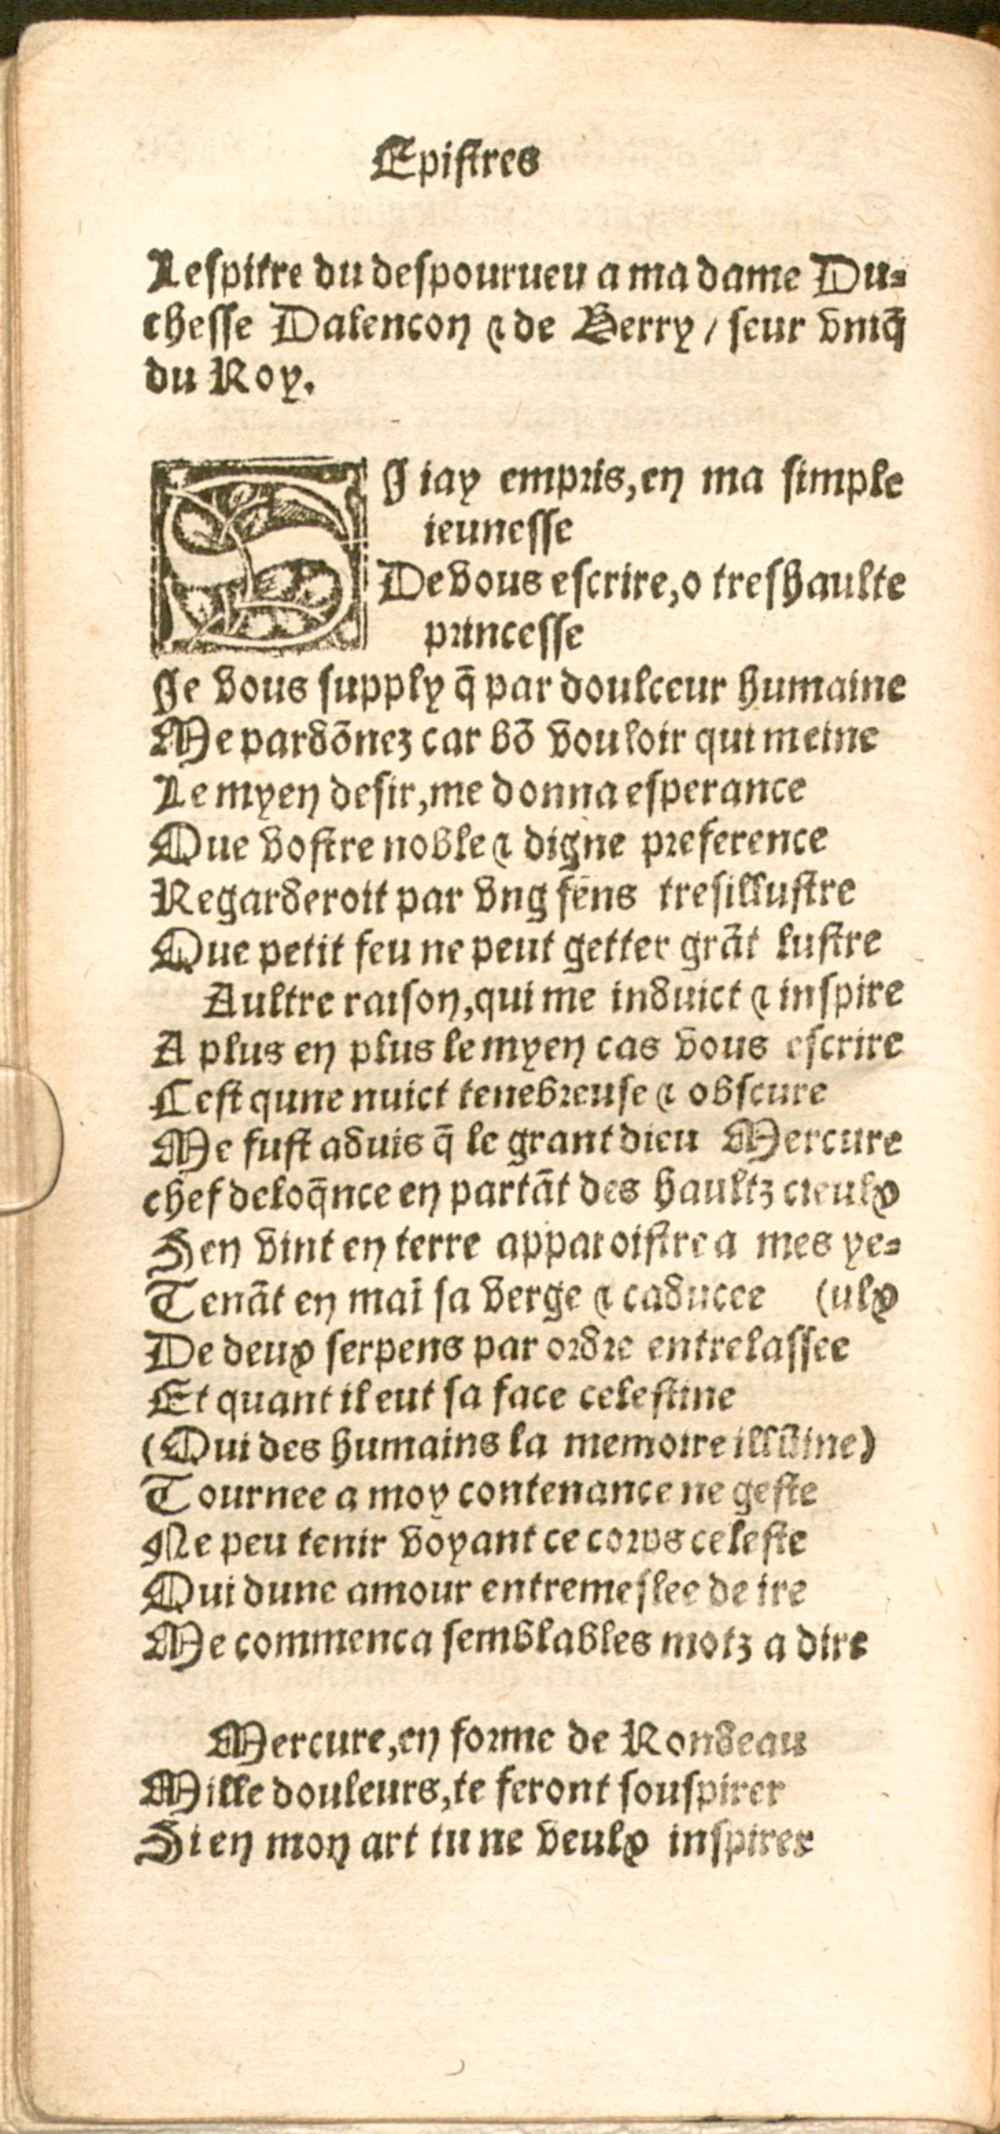 Epistres
Lespitre du despourueu a ma dame Du-
chesse Dalencon & de Berry / seur vniq̄
du Roy.
SI iay empris, en ma simple
ieunesse
De vous escrire, o treshaulte
princesse
Je vous supply q̄ par doulceur humaine
Me pardōnez car bō vouloir qui meine
Le myen desir, me donna esperance
Que vostre noble & digne preference
Regarderoit par vng sens tresillustre
Que petit feu ne peut getter grāt lustre
Aultre raison, qui me induict & inspire
A plus en plus le myen cas vous escrire
Cest qune nuict tenebreuse & obscure
Me fust aduis q̄ le grant dieu Mercure
chef deloq̄nce en partāt des haultz cieulx
Sen vint en terre apparoistre a mes ye-
Tenāt en maī sa verge & caducee (ulx
De deux serpens par ordre entrelassee
Et quant il eut sa face celestine
(Qui des humains la memoire illūine)
Tournee a moy contenance ne geste
Ne peu tenir voyant ce corps celeste
Qui dune amour entremeslee de ire
Me commenca semblables motz a dire
Mercure, en forme de Rondeau
Mille douleurs, te feront souspirer
Si en mon art tu ne veulx inspirer